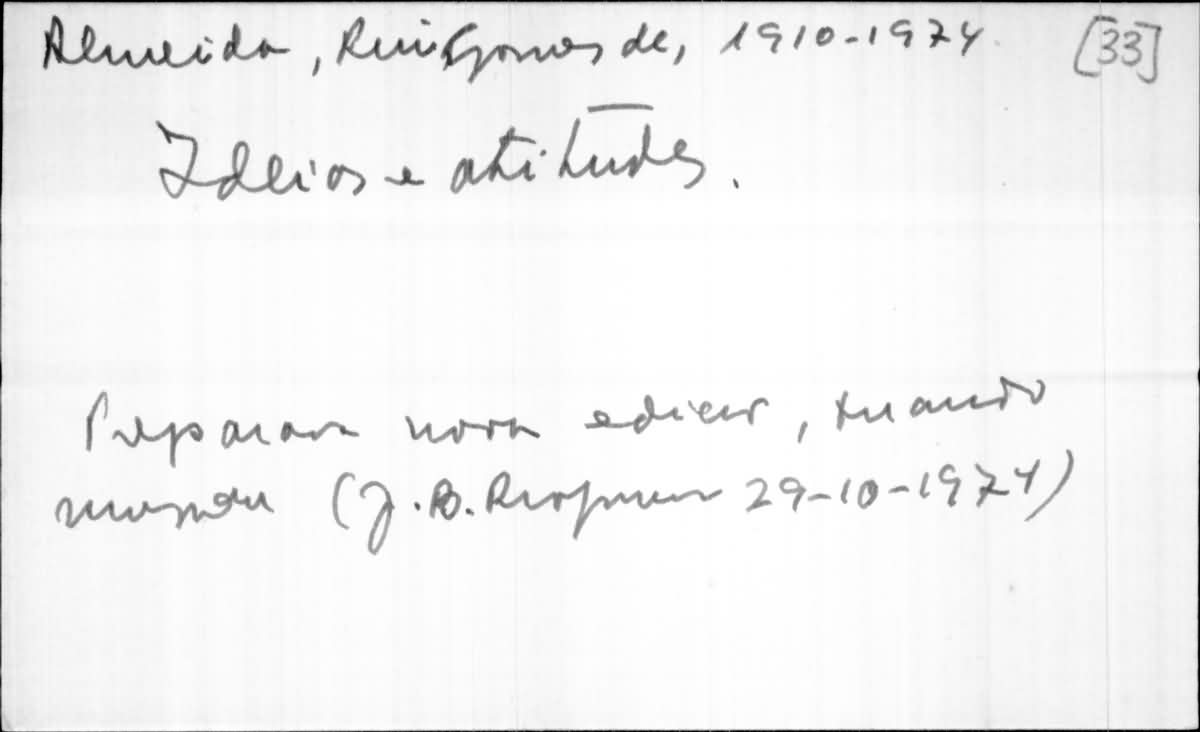 Almeida, Rui Gomes de, 1910-1974 [33]
Ideias e atitudes.
Preparava nova edição, quando
morreu (J. B. 29-10-1974)